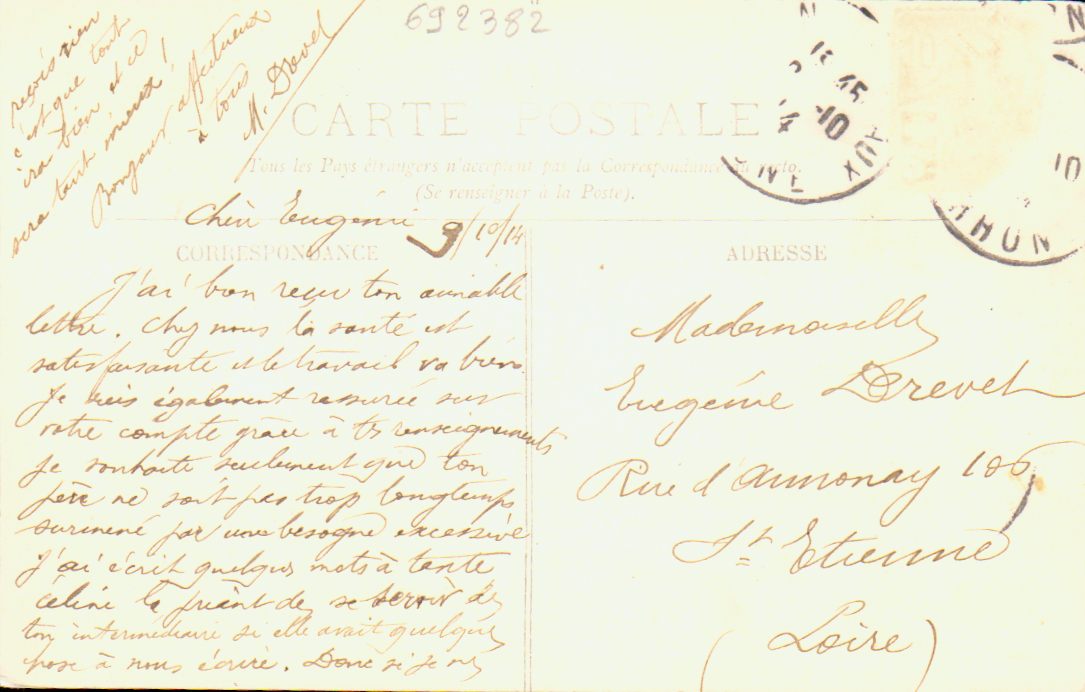 692382
CARTE POSTALE
Tous les Pays étrangers n'acceptent pas la Correspondance au recto.
(Se renseigner à la Poste).
CORRESPONDANCE
Chère Eugénie
9/10/14
J'ai bien reçu ton aimable
lettre. Chez nous la santé est
satisfaisante et le travail va bien.
Je suis également rassurée sur
votre compte grâce à tes renseignements
Je souhaite seulement que ton
père ne soit pas trop longtemps
surmené par une besogne excessive
J'ai écrit quelques mots à tante
céline la priant de se servir de
ton intermédiaire si elle avait quelque
chose à nous écrire. Donc si je ne
reçois rien
c'est que tout
ira bien et ce
sera tant mieux!
Bonjour affectueux
à tous
M. Drevet
ADRESSE
Mademoiselle
Eugénie Drevet
Rue d'Annonay 106
St Etienne
(Loire)
15 45
-10
10
RHON